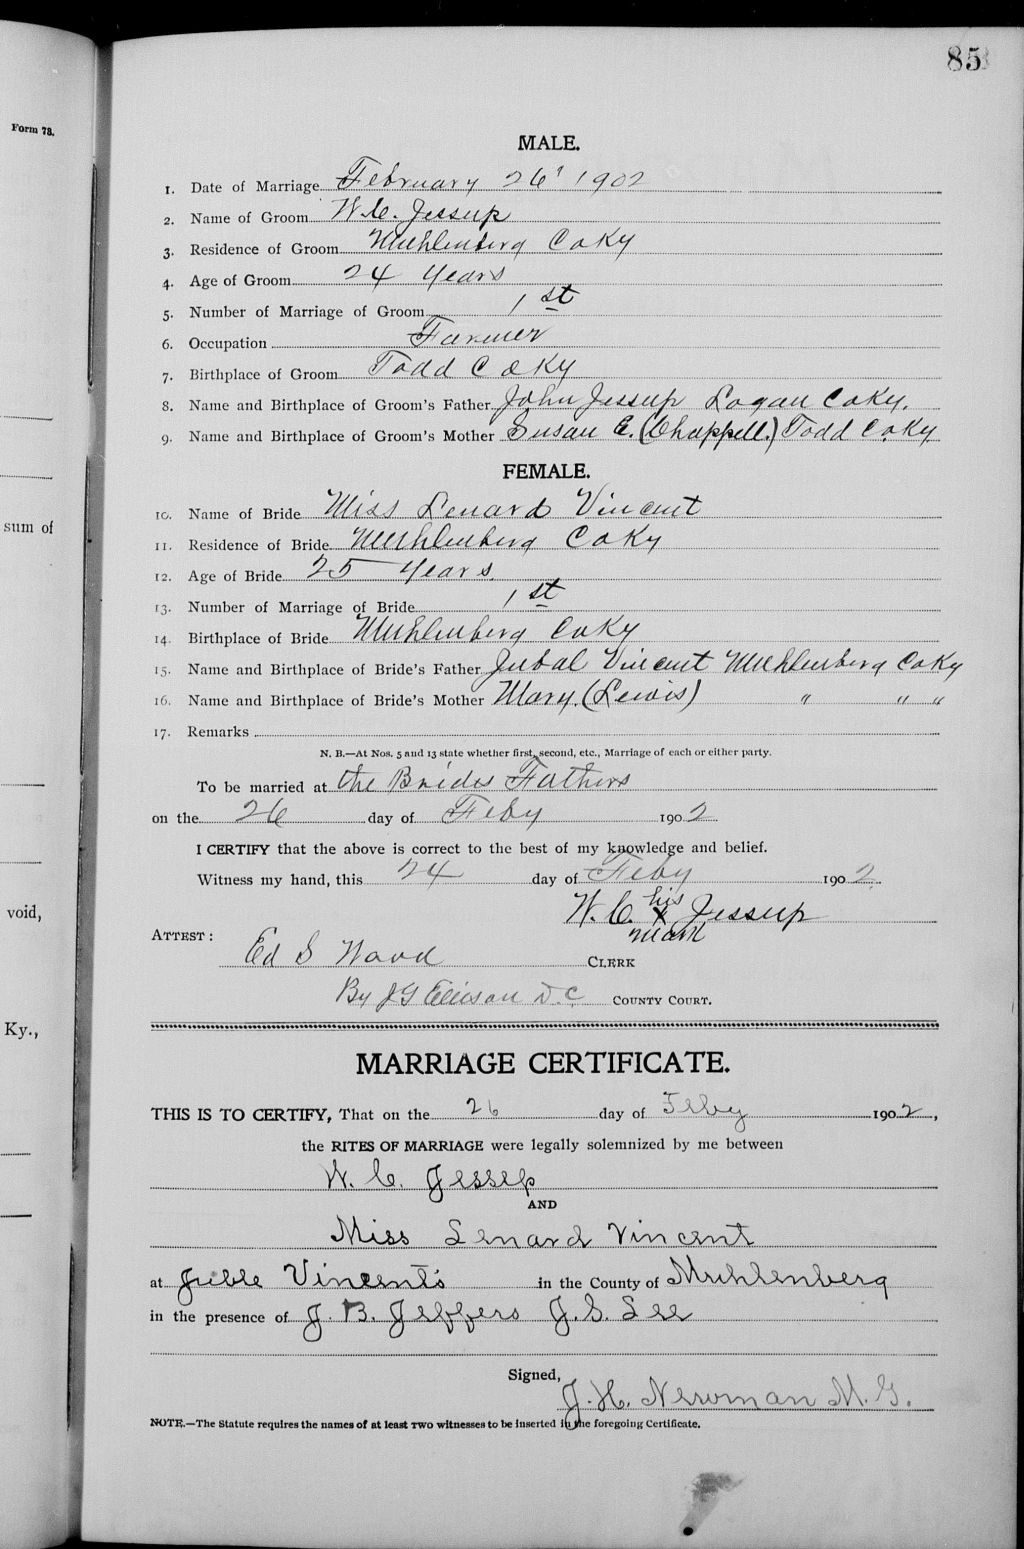 85
Form 78.
sum of
void,
Ky.,
MALE.
1. Date of Marriage February 26' 1902
2. Name of Groom W.C. Jessup
3. Residence of Groom Muhlenberg Co Ky
4. Age of Groom 24 Years
5. Number of Marriage of Groom 1st
6. Occupation Farmer
7. Birthplace of Groom Todd Co Ky
8. Name and Birthplace of Groom's Father John Jessup Logan Co Ky.
9. Name and Birthplace of Groom's Mother Susan E. (Chappell.) Todd Co. Ky
FEMALE.
10. Name of Bride Miss Lenard Vincent
11. Residence of Bride Muhlenberg Co Ky
12. Age of Bride 25 Years.
13. Number of Marriage of Bride 1st
14. Birthplace of Bride Muhlenberg Co Ky
15. Name and Birthplace of Bride's Father Jubal Vincent Muhlenberg Co Ky
16. Name and Birthplace of Bride's Mother Mary (Lewis) " " "
17. Remarks
N. B.—At Nos. 5 and 13 state whether first, second, etc., Marriage of each or either party.
To be married at the Brides Fathers
on the 26 day of Feby 1902
I CERTIFY that the above is correct to the best of my knowledge and belief.
Witness my hand, this 24 day of Feby 1902.
his
W. C. X Jessup
mark
ATTEST:
Ed S Wood CLERK
By J G Ellison D.C. COUNTY COURT.
MARRIAGE CERTIFICATE.
THIS IS TO CERTIFY, That on the 26 day of Feby 1902,
the RITES OF MARRIAGE were legally solemnized by me between
W. C. Jessup
AND
Miss Lenard Vincent
at Juble Vincent's in the County of Muhlenberg
in the presence of J. B. Jeffers J. S. Lee
Signed,
J. H. Newman M. G.
NOTE.—The Statute requires the names of at least TWO witnesses to be inserted in the foregoing Certificate.